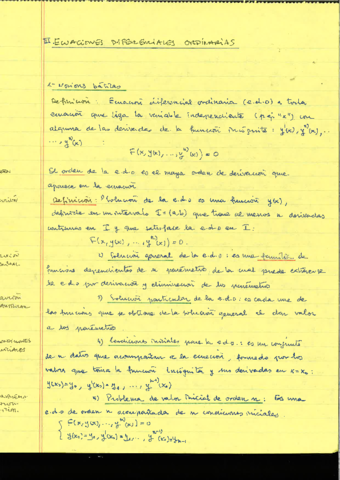 III ECUACIONES DIFERENCIALES ORDINARIAS
1- Nociones básicas
Definición: Ecuación diferencial ordinaria (e.d.o) a toda
ecuación que liga la variable independiente (p.ej: "x") con
alguna de las derivadas de la función incógnita: y(x), y'(x), ..
..., y^(n)(x)
F(x, y(x), ..., y^(n)(x)) = 0
El orden de la e.d.o es el mayor orden de derivación que
aparece en la ecuación
Definición: Solución de la e.d.o es una función y(x),
definida en un intervalo I=(a,b) que tiene al menos n derivadas
continuas en I y que satisface la e.d.o en I:
F(x, y(x), .., y^(n)(x)) = 0.
1) Solución general de la e.d.o: es una familia de
funciones dependientes de n parámetros de la cual puede extraerse
la e.d.o por derivación y eliminación de los parámetros
2) Solución particular de la e.d.o: es cada una de
las funciones que se obtiene de la solución general al dar valor
a los parámetros
3) Condiciones iniciales para la e.d.o.: es un conjunto
de n datos que acompañan a la ecuación, formado por los
valores que toma la función incógnita y sus derivadas en x=x₀:
y(x₀)=y₀, y'(x₀)=y₁, ..., y^(n-1)(x₀)
Problema de valor inicial de orden n: Es una
e.d.o de orden n acompañada de n condiciones iniciales.
{ F(x, y(x), ..., y^(n)(x)) = 0